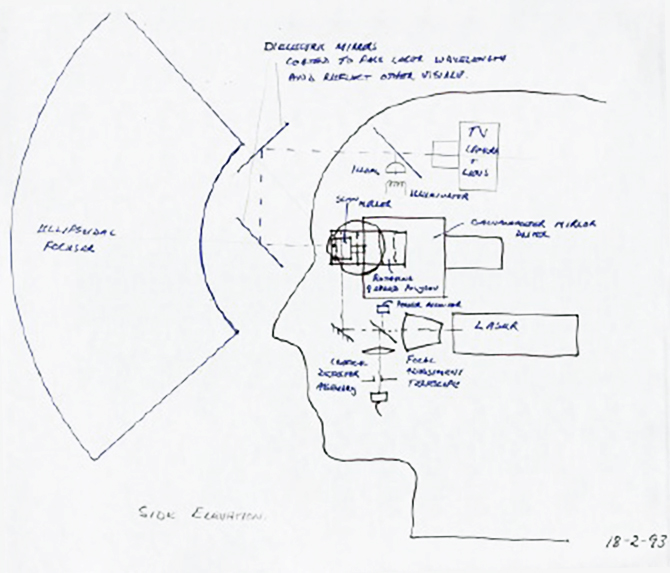 DIELECTRIC MIRRORS
COATED TO PASS LASER WAVELENGTH
AND REFLECT OTHER VISIBLE.
TV
CAMERA
+
LENS
ILLUM
ILLUMINATOR
SCAN
MIRROR
ELLIPSOIDAL
FOCUSER
GALVANOMETER MIRROR
DRIVER
ROTATING
SPEED POLYGON
POWER MONITOR
LASER
DETECTOR
ASSEMBLY
FOCAL
ADJUSTMENT
TELESCOPE
SIDE ELEVATION.
18-2-93